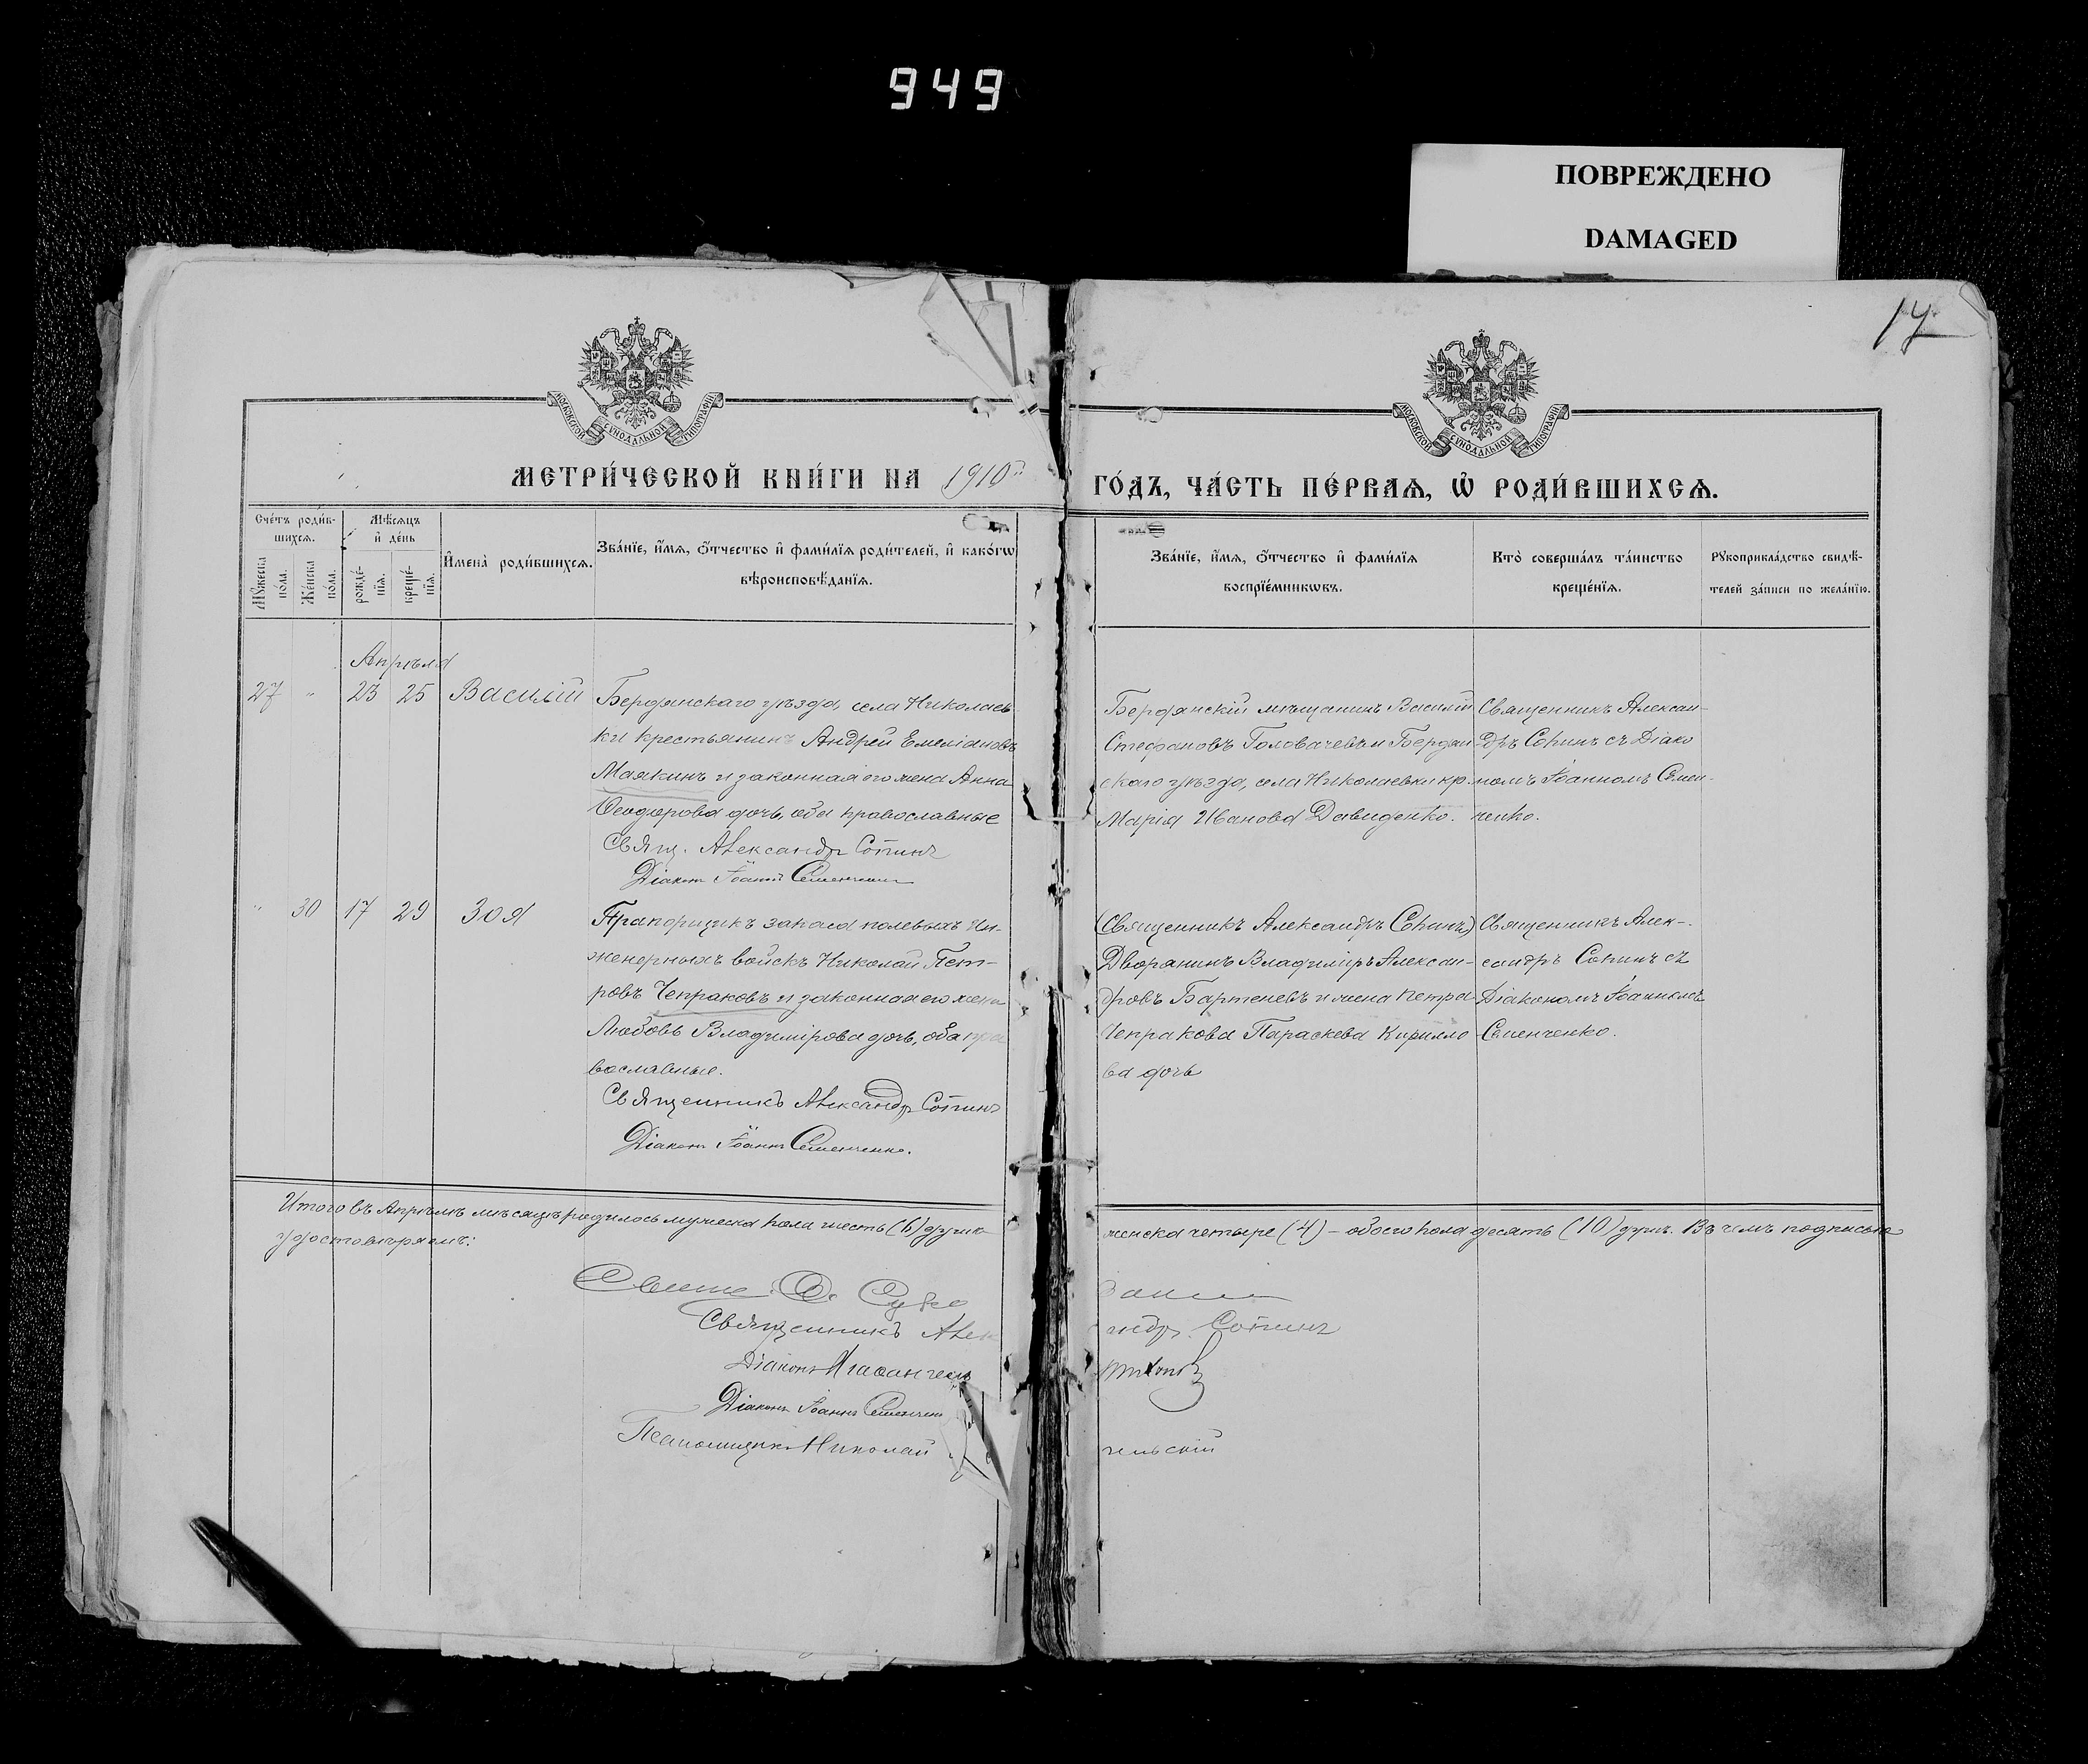 949
ПОВРЕЖДЕНО
DAMAGED
17
МОСКОВСКОЙ СѴНОДАЛЬНОЙ ТИПОГРАФІИ
МОСКОВСКОЙ СѴНОДАЛЬНОЙ ТИПОГРАФІИ
МЕТРИ́ЧЕСКОЙ КНИ́ГИ НА 1910й
ГО́ДЪ, ЧА́СТЬ ПЕ́РВАѦ, Ѡ РОДИ́ВШИХСѦ.
Сче́тъ роди́в-
шихсѧ.
Мꙋжеска по́ла.
Же́нска по́ла.
Мѣ́сѧцъ и де́нь
рожде́-нїѧ.
креще́-нїѧ.
Имена̀ роди́вшихсѧ.
Зва́нїе, и́мѧ, о́тчество и фами́лїѧ роди́телей, и како́гѡ
вѣроисповѣ́данїѧ.
Зва́нїе, и́мѧ, о́тчество и фами́лїѧ
воспрїе́мникѡвъ.
Кто̀ соверша́лъ та́инство
креще́нїѧ.
Рꙋкоприкла́дство свидѣ́-
телей за́писи по жела́нїю.
Апрѣля
27 " 23 25 Василій
Бердянскаго уѣзда, села Николаев-
ки крестьянинъ Андрей Емеліановъ
Маякинъ и законная его жена Анна
Ѳеодорова дочь, оба православные
Свящ. Александръ Сопинъ
Діаконъ Іоаннъ Семенченко
Бердянскій мѣщанинъ Василій
Стефановъ Головачевъ и Бердян
скаго уѣзда, села Николаевки кр.
Марія Иванова Давиденко.
Священникъ Алексан-
дръ Сопинъ съ Діако
номъ Іоанномъ Семен-
ченко.
" 30 17 29 Зоя
Прапорщикъ запаса полевыхъ Ин-
женерныхъ войскъ Николай Пет-
ровъ Чепраковъ и законная его жена
Любовь Владимірова дочь, оба пра
вославные.
Священникъ Александръ Сопинъ
Діаконъ Іоаннъ Семенченко.
(Священникъ Александръ Сопинъ)
Дворянинъ Владиміръ Алексан-
дровъ Бартеневъ и жена Петра
Чепракова Параскева Кирилло
ва дочь
Священникъ Алек-
сандръ Сопинъ съ
Діакономъ Іоанномъ
Семенченко.
Итого въ Апрѣлѣ мѣсяцѣ родилось мужеска пола шесть (6) душъ
женска четыре (4) – обоего пола десять (10) душъ. Въ чемъ подписью
удостовѣряемъ:
Священникъ Алек
андръ Сопинъ
Діаконъ
Діаконъ Іоаннъ Семенченко
Псаломщикъ Николай
чельскій